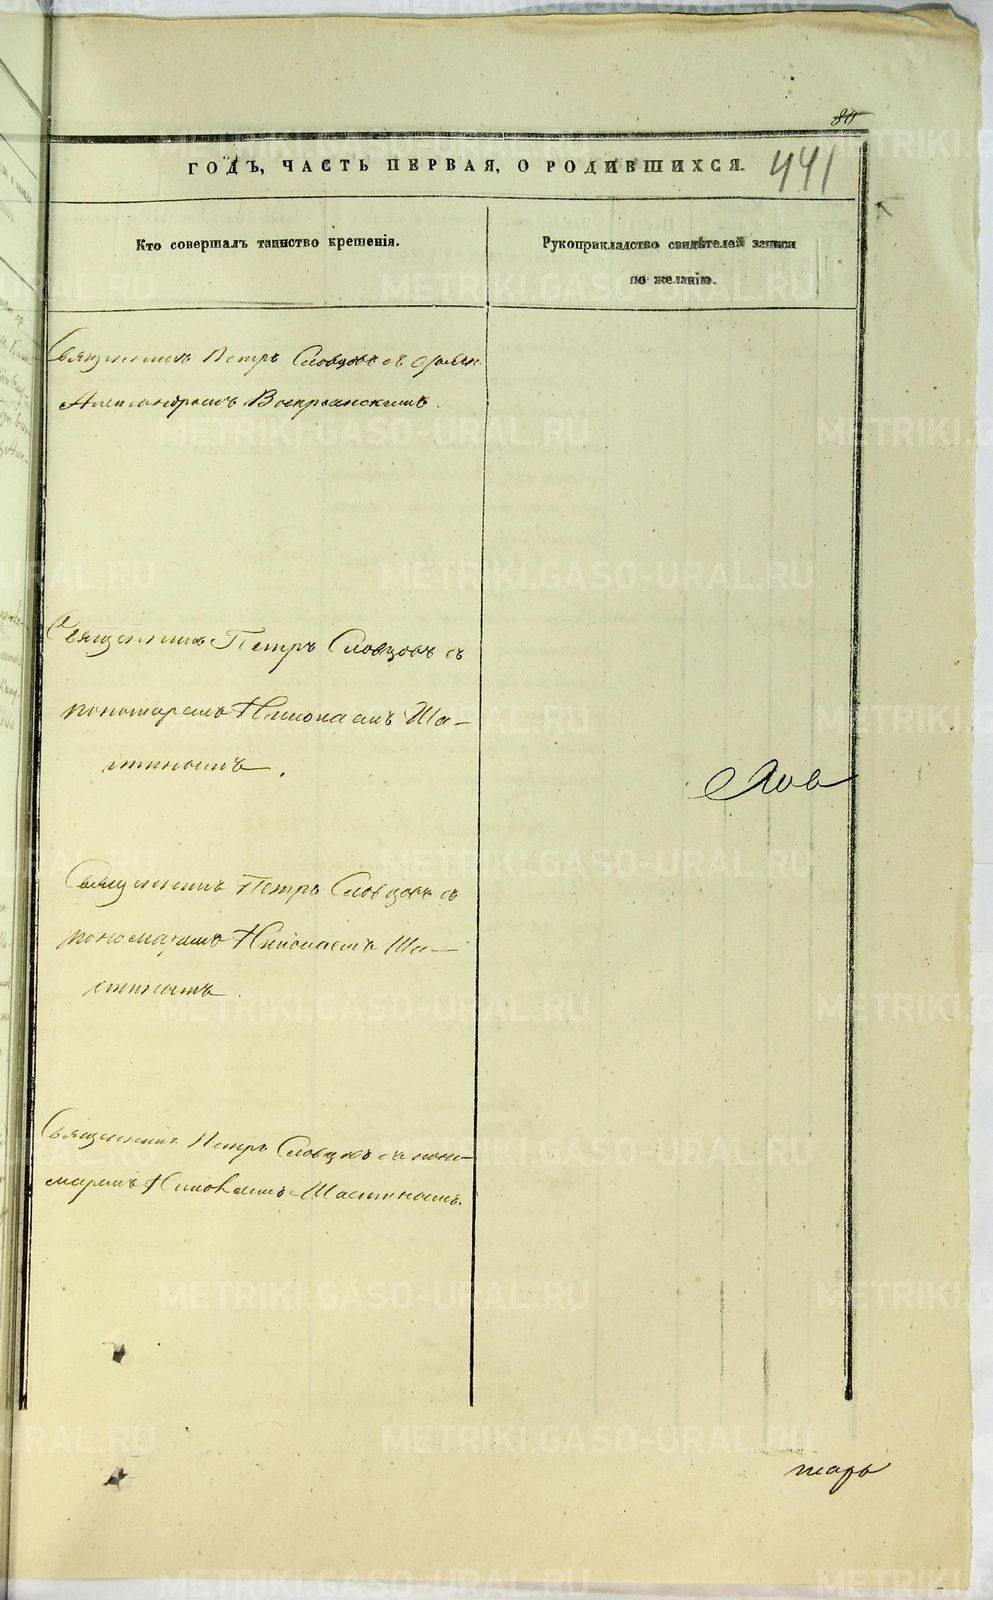 80
ГОДЪ, ЧАСТЬ ПЕРВАЯ, О РОДИВШИХСЯ.
441
Кто совершалъ таинство крещенія.
Рукоприкладство свидѣтелей записи
по желанію.
Священникъ Петръ Словцовъ съ
Александромъ Воскресенскимъ.
Священникъ Петръ Словцовъ съ
пономаремъ Николаемъ Ша-
.
Священникъ Петръ Словцовъ съ
пономаремъ Николаемъ Ша-
Священникъ Петръ Словцовъ съ поно-
маремъ Николаемъ
тарь
METRIKI.GASO-URAL.RU